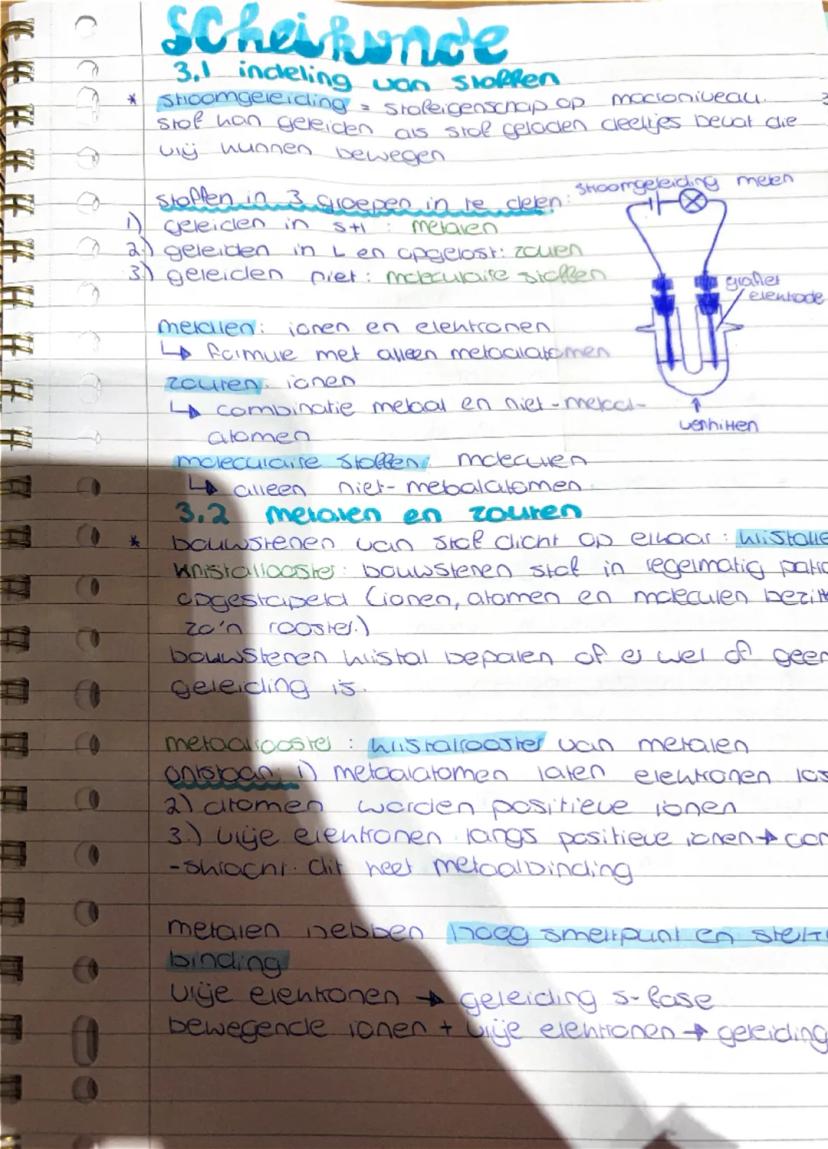 Scheikunde
3.1 indeling van stoffen
* stroomgeleiding = stofeigenschap op macroniveau.
stof kan geleiden als stof geladen deeltjes bevat die
vrij kunnen bewegen
stoffen in 3 groepen in te delen:
1) geleiden in s+l : metalen
2) geleiden in L en opgelost: zouten
3) geleiden niet: moleculaire stoffen
stroomgeleiding meten
grafiet
elektrode
verhitten
metalen: ionen en elektronen
↳ formule met alleen metaalatomen
zouten: ionen
↳ combinatie metaal en niet-metaal-
atomen
moleculaire stoffen: moleculen
↳ alleen niet-metaalatomen
3.2 metalen en zouten
* bouwstenen van stof dicht op elkaar: kristalle
kristalrooster: bouwstenen stof in regelmatig patro
opgestapeld (ionen, atomen en moleculen bezitt
zo'n rooster.)
bouwstenen kristal bepalen of er wel of geen
geleiding is.
metaalrooster : kristalrooster van metalen
ontstaan: 1) metaalatomen laten elektronen los
2) atomen worden positieve ionen
3.) vrije elektronen langs positieve ionen →
-skracht. dit heet metaalbinding
metalen hebben hoeg smeltpunt en sterk
binding
vrije elektronen → geleiding s-fase
bewegende ionen + vrije elektronen → geleiding